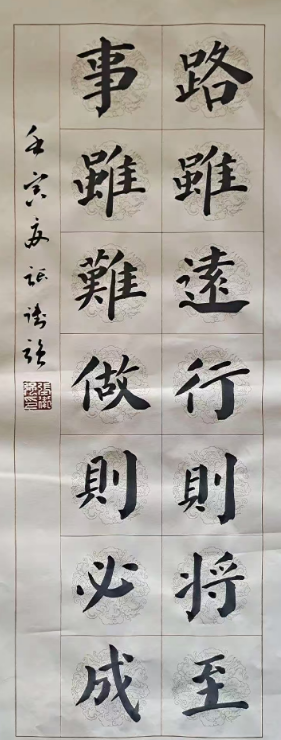 路雖遠行則将至
事雖難做則必成
壬寅夏